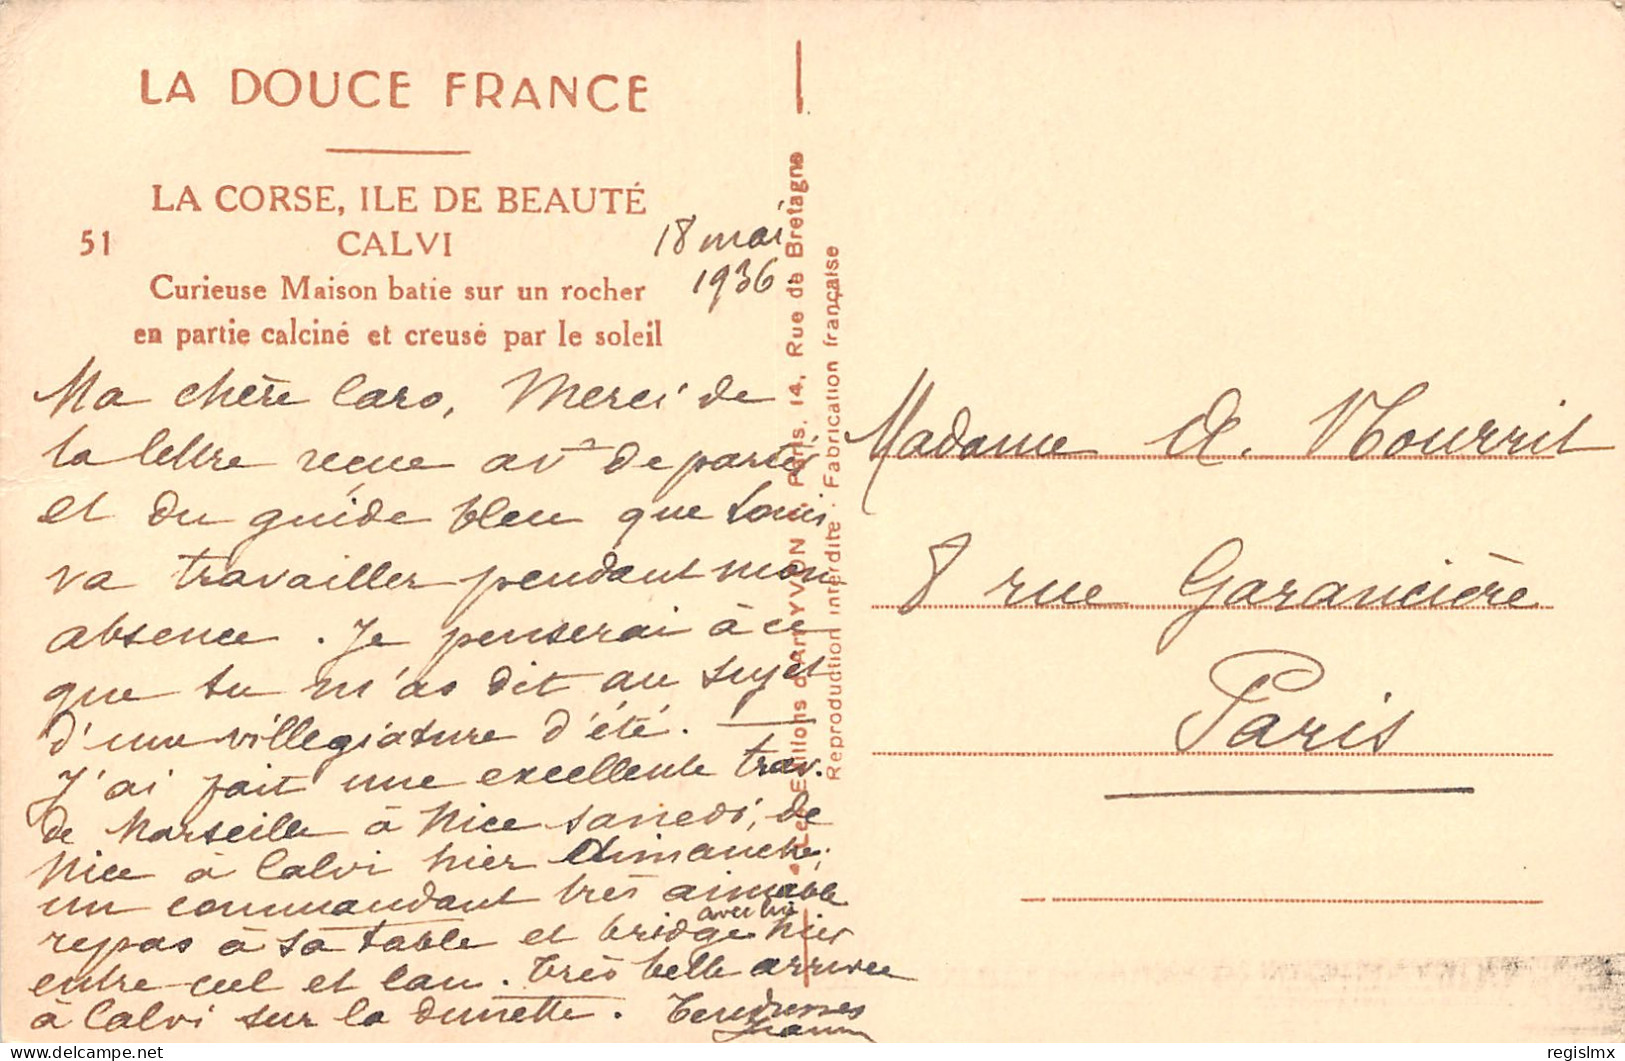 LA DOUCE FRANCE
LA CORSE, ILE DE BEAUTÉ
51 CALVI
Curieuse Maison batie sur un rocher
en partie calciné et creusé par le soleil
18 mai
1936
Ma chère Caro, Merci de
la lettre reçue avt de partir
et du guide bleu que Louis
va travailler pendant mon
absence. Je penserai à ce
que tu m'as dit au sujet
d'une villegiature d'été. —
J'ai fait une excellente trav.
de Marseille à Nice samedi, de
Nice à Calvi hier dimanche;
un commandant très aimable
repas à sa table et bridge avec lui hier
entre ciel et eau. Très belle arrivée
à Calvi sur la dunette. Tendresses
Les Editions d'Art YVON. Paris, 14, Rue de Bretagne
Reproduction interdite . Fabrication française
Madame A. Nourrit
8 rue Garancière
Paris
regislmx